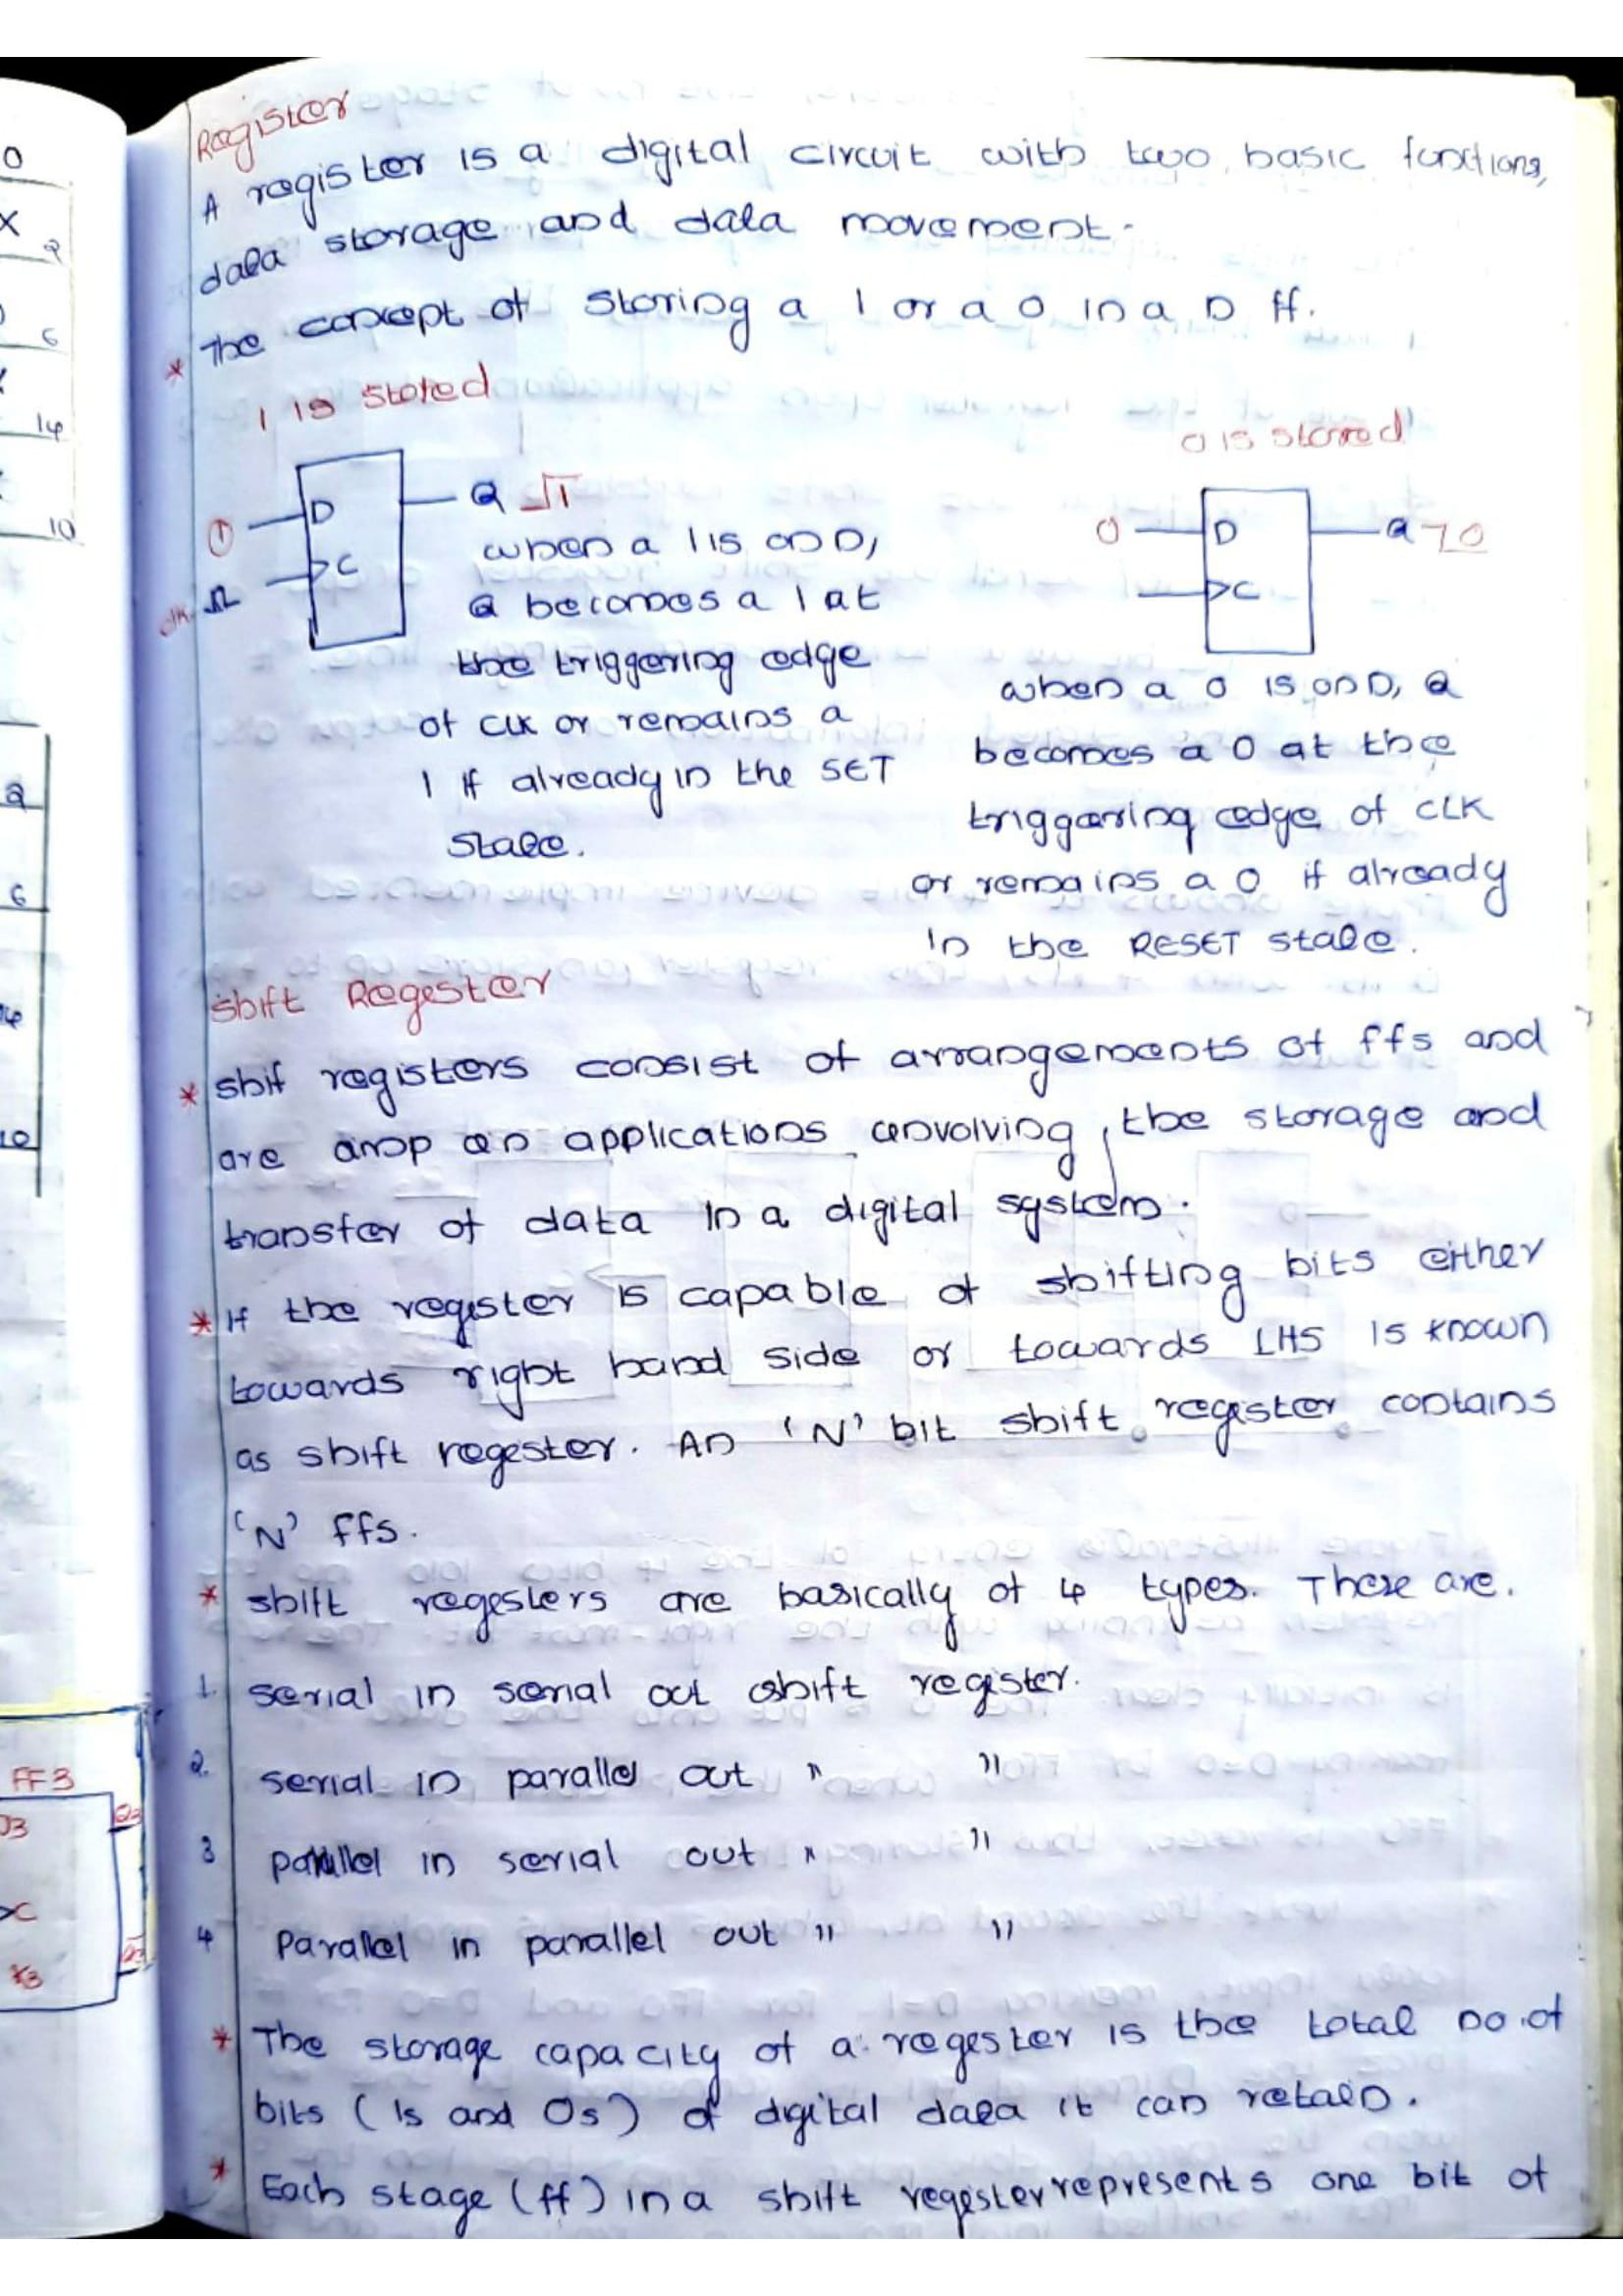 Register
A register is a digital circuit with two basic functions,
data storage and data movement.
* The concept of storing a 1 or a 0 in a D ff.
1 is stored
0 is stored
1 D Q 1
clk C
when a 1 is on D,
Q becomes a 1 at
the triggering edge
of clk or remains a
1 if already in the SET
state.
0 D Q 0
C
when a 0 is on D, Q
becomes a 0 at the
triggering edge of CLK
or remains a 0 if already
in the RESET state.
shift Regester
* shif registers consist of arrangements of ffs and
are amp en applications envolving the storage and
transfer of data in a digital system.
* If the regester is capable of shifting bits either
towards right hand side or towards LHS is known
as shift regester. An 'N' bit shift regester contains
'N' ffs.
* shift regesters are basically of 4 types. These are.
1. serial in serial out shift regester.
2. serial in parallel out " "
3 parallel in serial out " "
4 Parallel in parallel out " "
* The storage capacity of a regester is the total no.of
bits (1s and 0s) of digital data it can retain.
* Each stage (ff) in a shift regester represents one bit of
0
X
2
6
14
10
2
6
14
10
FF3
J3
Q3
>C
K3